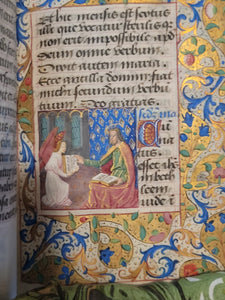 Et hic mensis est sextus
illi que vocatur sterilis q
non erit impossibile apud
deum omne verbum
Dixit autem maria.
Ecce ancilla domini fiat
michi secundum verbum
tuum. Deo gratias.
Scdz ma
Cum
natus
esset ih
in beth
leem
iude i